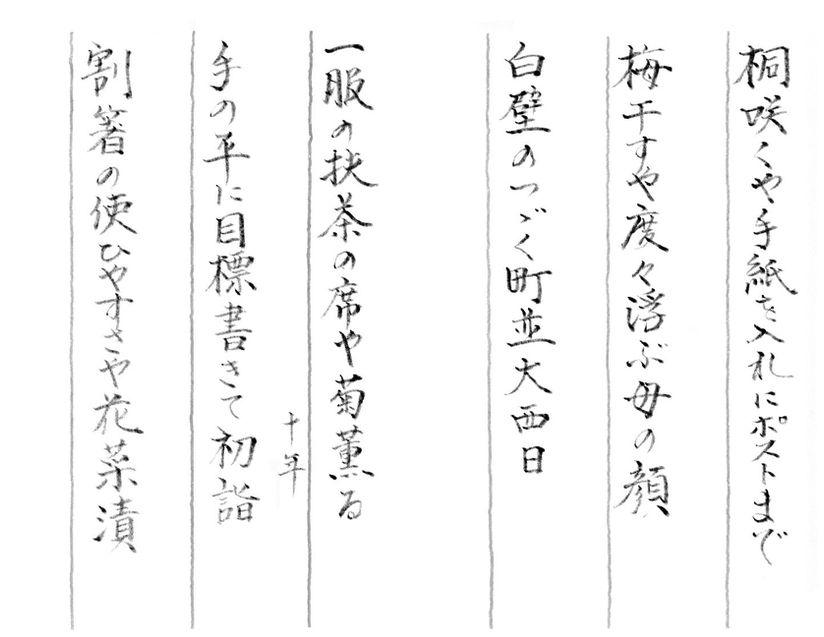 桐咲くや手紙を入札にポストまで
梅干すや度々浮ぶ母の顔
白壁のつゞく町並大西日
一服の抹茶の席や菊薫る
十年
手の平に目標書きて初詣
割箸の使ひやすさや花菜漬